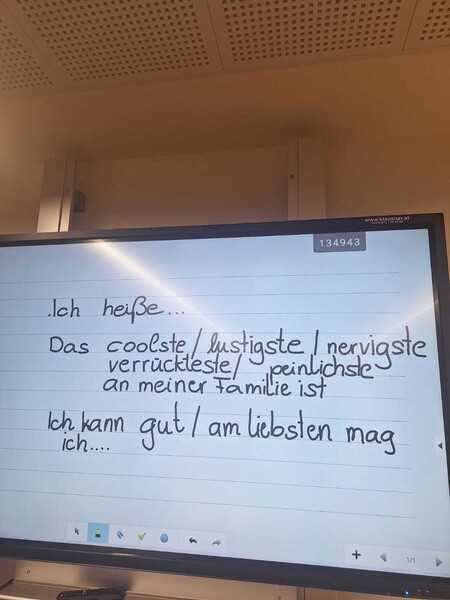 www.klausner.at
134943
.Ich heiße...
Das coolste / lustigste / nervigste
verrückteste / peinlichste
an meiner Familie ist
Ich kann gut / am liebsten mag
ich....
1/1